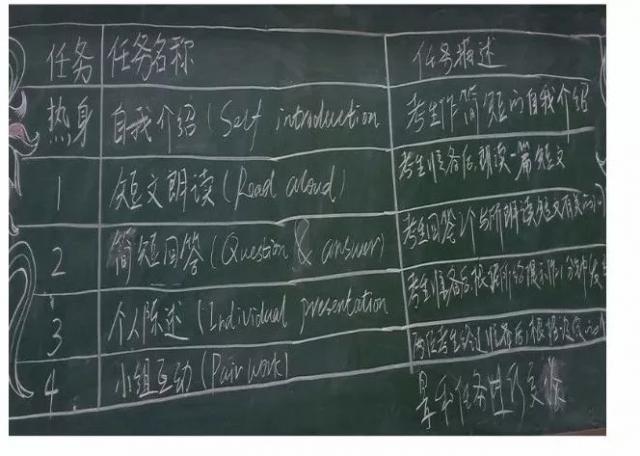 任务 任务名称 任务描述
热身 自我介绍 (Self introduction 考生作简短的自我介绍
1 短文朗读 (Read aloud) 考生准备后,朗读一篇短文
2 简短回答 (Question & answer) 考生回答2个与所朗读短文有关的问
3 个人陈述 (Individual presentation 考生准备后,根据所给提示作1分钟发言
4 小组互动 (Pair work) 两位考生经过准备后,根据设定的
任务进行交谈